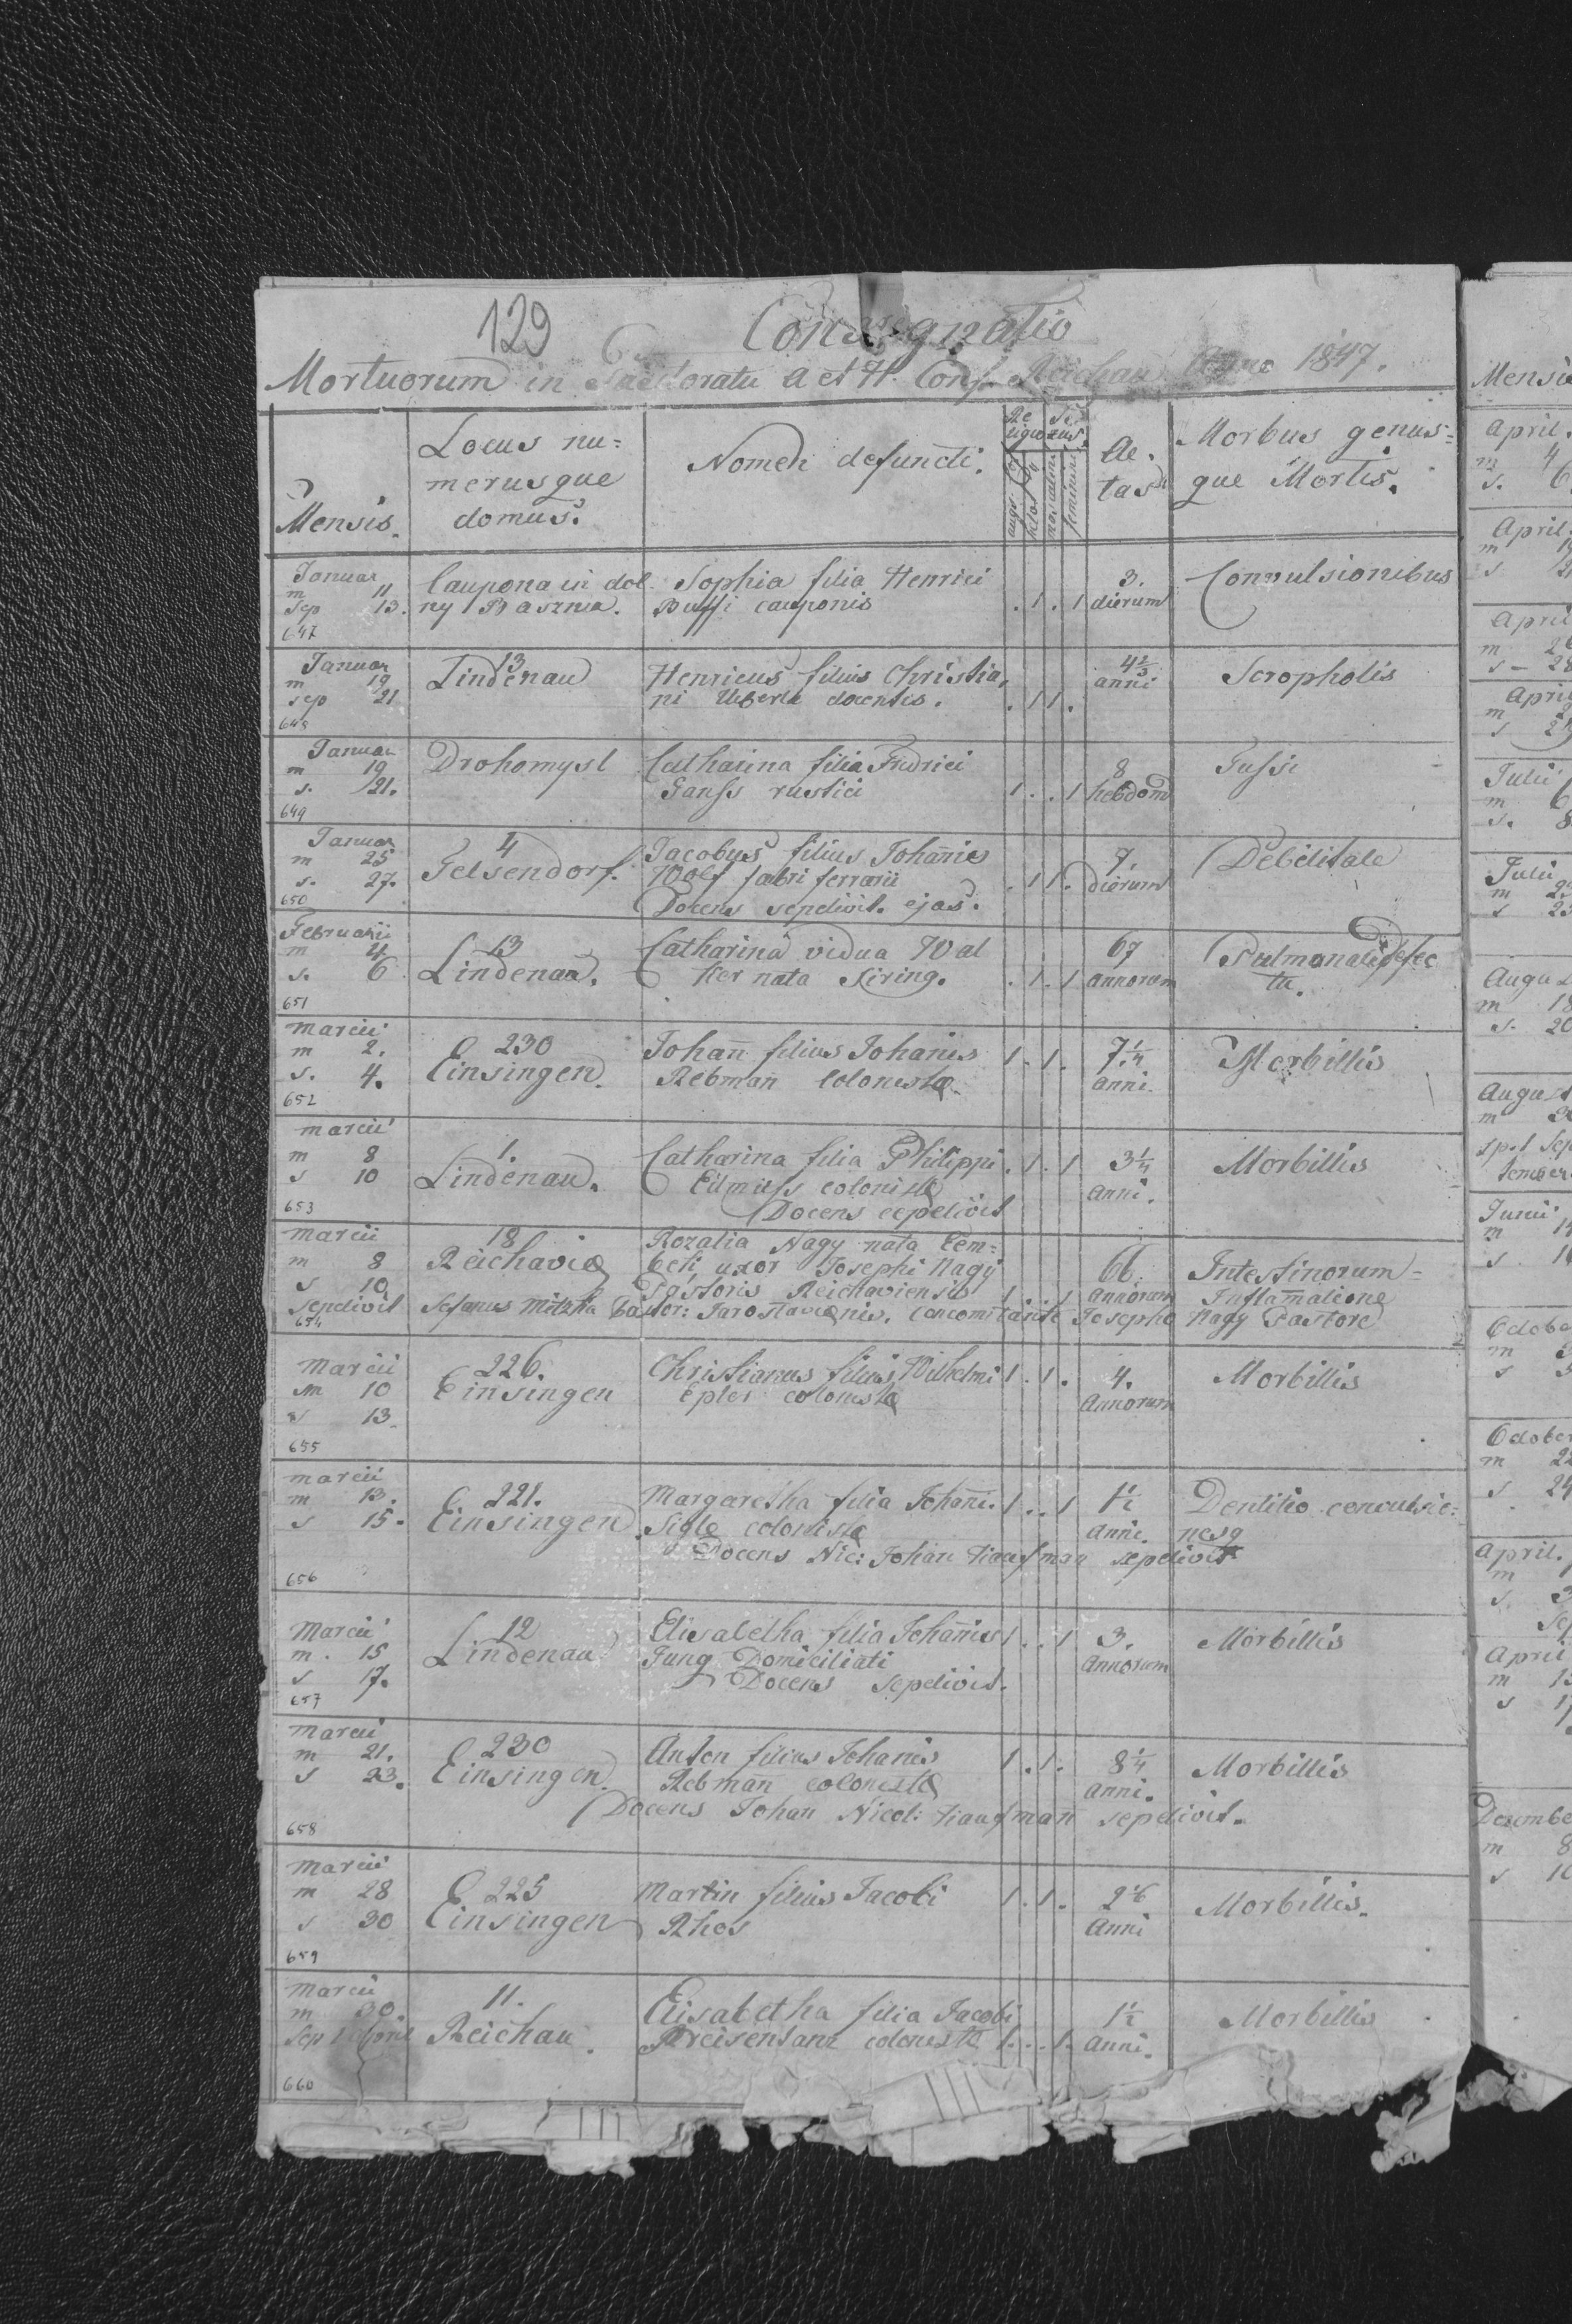 129
Consignatio
Mortuorum in Pastoratu A et H. Conf. Reichau Anno 1847.
Mensis.
Locus nu=
merusque
domus.
Nomen defuncti.
Re
ligio
Se
xus.
Ae.
tas
Morbus genus=
que Mortis.
Januar
m 11
Sep 13.
647
Caupona in dol
ny Basznia.
Sophia filia Henrici
Buffi cauponis
. 1 . 1
3.
dierum
Convulsionibus
Januar
m 19
sep 21
648
13
Lindenau
Henricus filius Christia,
ni Uberle docentis.
. 1 1 .
4 2/3
anni
Scropholis
Januar
m 19
s. 21.
649
Drohomysl
Catharina filia Fridrici
Ganss rustici
1 . . 1
8
hebdom
Tussi
Januar
m 25
s. 27.
650
4
Felsendorf.
Jacobus filius Johannis
Wolf fabri ferrarii
Docens sepelivit. ejas.
. 1 1 .
7.
dierum
Debilitate
Februarii
m 4
s. 6
651
13
Lindenau.
Catharina vidua Wal
ker nata Kiring.
. 1 . 1
67
annorum
Pulmonali defec
tu.
marcii
m 2.
s. 4.
652
230
Einsingen.
Johan̄ filius Johanis
Rebman̄ Colonistæ
1 . 1 .
7 1/4
anni
Morbillis
marcii
m 8
s 10
653
1.
Lindenau.
Catharina filia Philippi
colonistæ
Docens sepelivit
. 1 . 1
3 1/4
anni.
Morbillis
marcii
m 8
s 10
18
Reichaviæ
Rozalia Nagy nata Cem=
beli uxor Josephi Nagy
Pastoris Reichaviensis
1 . . 1
66.
Annorum
Intestinorum=
Inflam̄atione
Sepelivit Stefanus Mitzka Pastor: Jaroslaviænis. concomitante Josepho Nagy Pastore
654
Marcii
m 10
s 13
655
226.
Einsingen
Christianus filius Wilhelmi
Epler colonistæ
1 . 1 .
4.
Annorum
Morbillis
marcii
m 13.
s 15.
656
221.
Einsingen
Margaretha filia Johan̄i.
Sigle colonistæ
Docens Nic: Johan Haufman sepelivit
1 . . 1
1 1/2
Anni.
Dentitio convulsio=
nesq
Marcii
m. 15
s 17.
657
12
Lindenau
Elisabetha filia Johan̄is
Jung Domiciliati
Docens sepelivit.
1 . . 1
3.
Annorum
Morbillis
Marcii
m 21.
s 23.
658
230
Einsingen.
Anton filius Johanis
Rebman̄ colonistæ
Docens Johan Nicol: Haufman sepelivit.
1 . 1 .
8 1/4
anni.
Morbillis
Marcii
m 28
s 30
659
225
Einsingen
Martin filius Jacobi
Rhos
1 . 1 .
2 1/6
Anni
Morbillis.
Marcii
m 30.
Sep 1 April
660
11.
Reichau.
Elisabetha filia Jacobi
Preisentanz colonistæ
1 . . 1
1 1/2
Anni.
Morbillis
Mensis
April.
m 4
s. 6.
April.
m 19
s. 21
April
m 26
s - 28
April
m
s
Julii
m 6
s. 8
Julii
m
s
August
m 18
s. 20
August
m
sp. 1 Sep
tember
Junii
m 14
s. 16
October
m
s
October
m 22
s 24
April.
m 1
s. 3
Sep
April
m 15
s 17
December
m 8
s 10